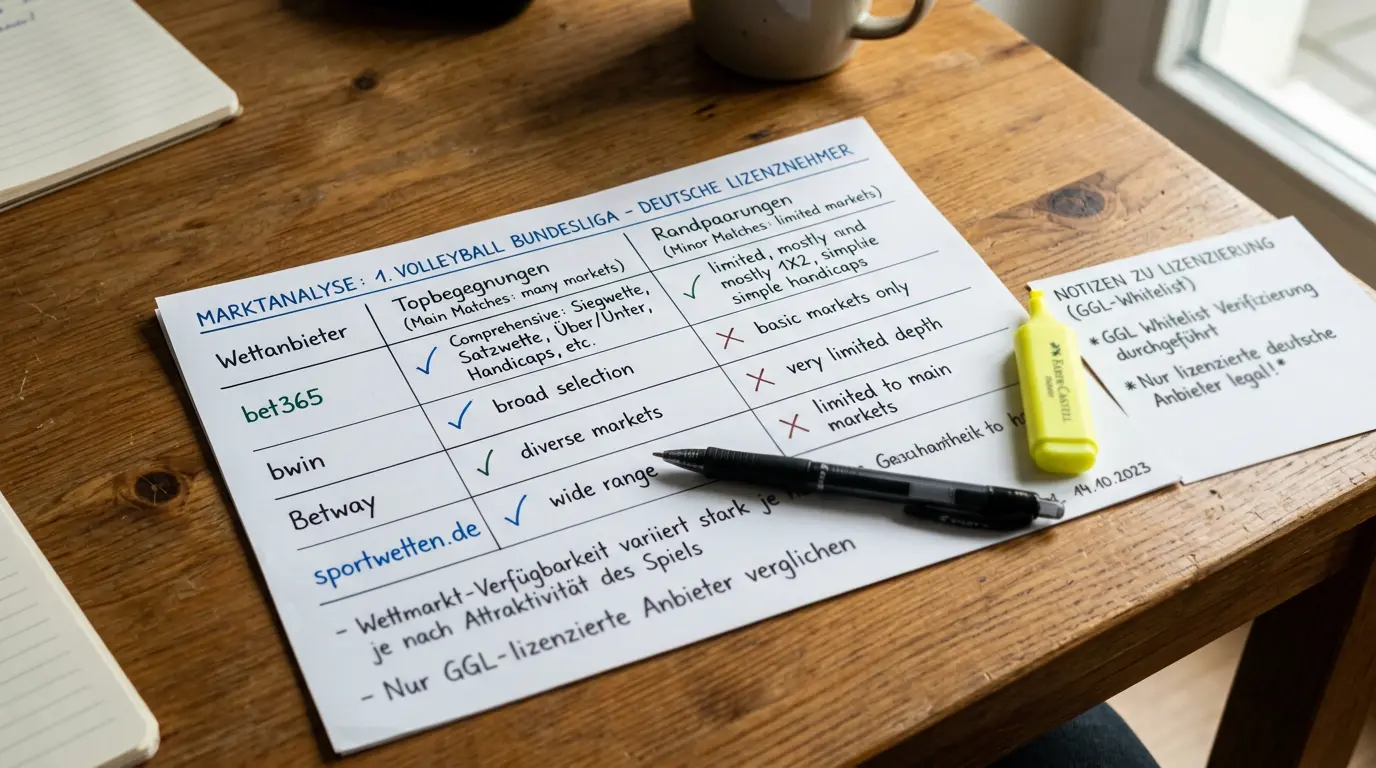 MARKTANALYSE: 1. VOLLEYBALL BUNDESLIGA – DEUTSCHE LIZENZNEHMER
Wettanbieter
Topbegegnungen
(Main Matches: many markets)
Randpaarungen
(Minor Matches: limited markets)
bet365
Comprehensive: Siegwette,
Satzwette, Über/Unter,
Handicaps, etc.
limited, mostly und
mostly 1X2, simple
simple handicaps
bwin
broad selection
basic markets only
Betway
diverse markets
very limited depth
sportwetten.de
wide range
limited to main
markets
- Wettmarkt-Verfügbarkeit variiert stark je
je nach Attraktivität des Spiels
- Nur GGL-lizenzierte Anbieter verglichen
14.10.2023
NOTIZEN ZU LIZENZIERUNG
(GGL-Whitelist)
* GGL Whitelist Verifizierung
durchgeführt
* Nur lizenzierte deutsche
Anbieter legal!*
FABER-CASTELL